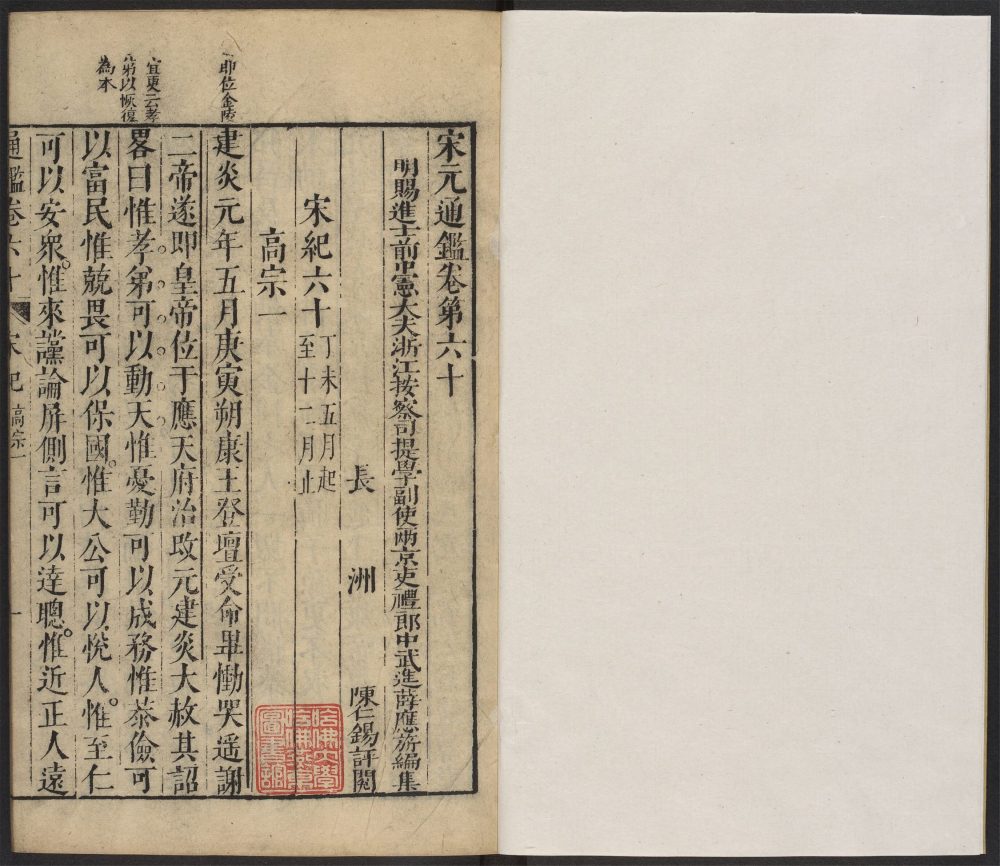 宋元通鑑卷第六十
明賜進士前中憲大夫浙江按察司提學副使兩京吏禮郎中武進薛應旂編集
長洲 陳仁錫評閱
宋紀六十 丁未五月起
至十二月止
高宗一
建炎元年五月庚寅朔康王登壇受命畢慟哭遥謝
二帝遂即皇帝位于應天府治改元建炎大赦其詔
畧曰惟孝弟可以動天惟憂勤可以成務惟恭儉可
以富民惟兢畏可以保國惟大公可以悅人惟至仁
可以安衆惟來讜論屏側言可以達聰惟近正人遠
通鑑卷六十 宋紀 高宗一 一
即位金陵
宜更云孝
弟以恢復
為本
哈佛大學
哈佛燕京
圖書館